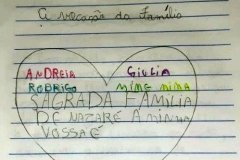 A vocação da família
ANDREIA GIULIA
RODRIGO MINE NINA
SAGRADA FAMÍLIA
DE NAZARÉ A MINHA
VOSSA É